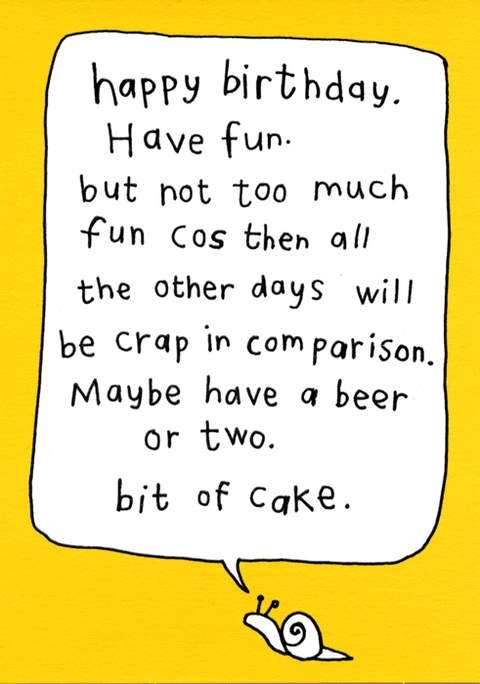 happy birthday.
Have fun.
but not too much
fun cos then all
the other days will
be crap in comparison.
Maybe have a beer
or two.
bit of cake.